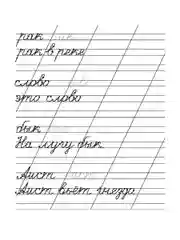 рак
рак в реке
слово
это слово
бык
На лугу бык.
Аист
Аист вьёт гнездо.